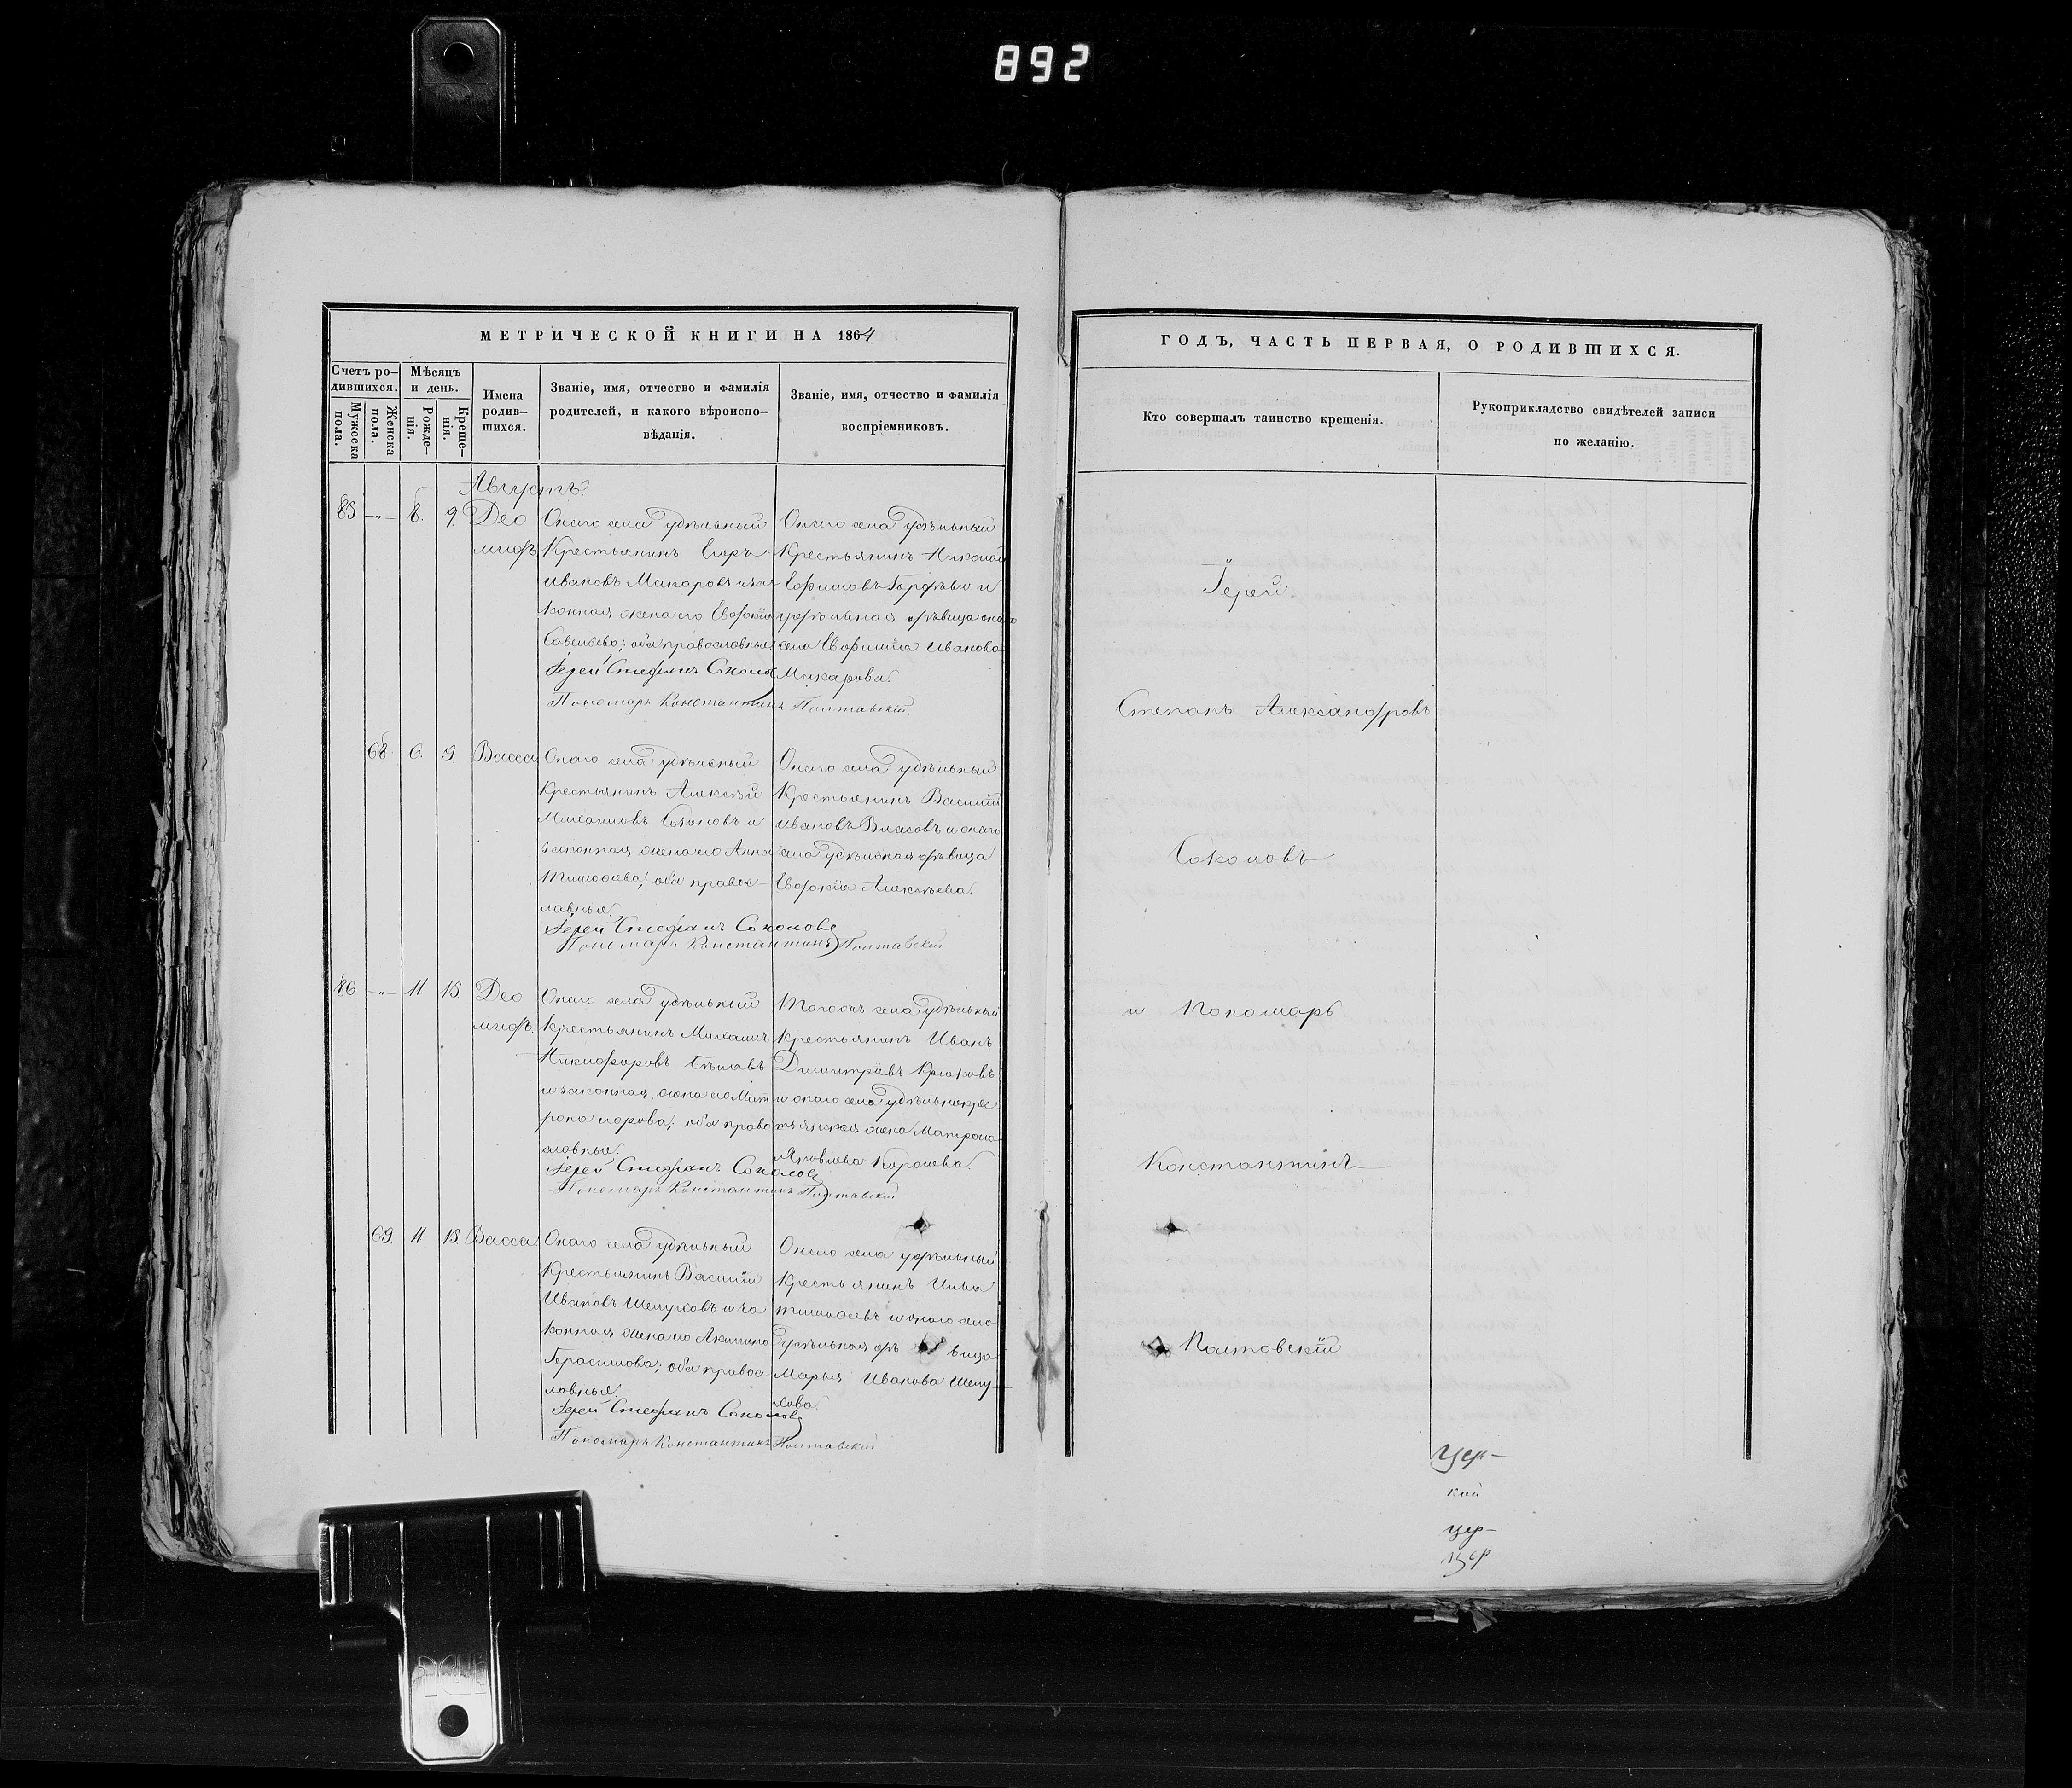 892
МЕТРИЧЕСКОЙ КНИГИ НА 1864
Счетъ ро-
дившихся.
Мужеска
пола.
Женска
пола.
Мѣсяцъ
и день.
Рожде-
нія.
Креще-
нія.
Имена
родив-
шихся.
Званіе, имя, отчество и фамилія
родителей, и какого вѣроиспо-
вѣданія.
Званіе, имя, отчество и фамилія
воспріемниковъ.
Августъ.
85 -„- 8. 9. Део
мидъ
Онаго села удѣльный
Крестьянинъ Егоръ
Ивановъ Макаровъ и за-
конная жена его Евдокія
Савельева; оба православные
Іерей Стефанъ Соколовъ
Пономарь Константинъ Полтавскій.
Онаго села удѣльный
Крестьянинъ Николай
Ефимовъ и
удѣльная дѣвица онаго
села Евфимія Иванова
Макарова.
68. 6. 9. Васса
Онаго села удѣльный
Крестьянинъ Алексѣй
Михаиловъ и
законная жена его Анна
Тимофеева; оба правос-
лавные.
Іерей Стефанъ Соколовъ
Пономарь Константинъ Полтавскій
Онаго села удѣльный
Крестьянинъ Василій
Ивановъ Власовъ и онаго
села удѣльная дѣвица
Евдокія Алексѣева.
86 -„- 11. 15. Део
мидъ.
Онаго села удѣльный
Крестьянинъ Михаилъ
Никифоровъ Бѣловъ
и законная жена его Мат
рона; оба право
славные.
Іерей Стефанъ Соколовъ
Пономарь Константинъ Полтавскій
Тогожъ села удѣльный
Крестьянинъ Иванъ
Димитріевъ Крюковъ
и онаго села удѣльнокрес
тьянская жена Матрона
Яковлева
69. 11 15. Васса.
Онаго села удѣльный
Крестьянинъ Василій
Ивановъ и за
конная жена его Акилина
Герасимова; оба правос-
лавные.
Іерей Стефанъ Соколовъ
Пономарь Константинъ Полтавскій
Онаго села удѣльный
Крестьянинъ Илья
Тимофеевъ и онаго села
удѣльная дѣвица
Марья Иванова
ГОДЪ, ЧАСТЬ ПЕРВАЯ, О РОДИВШИХСЯ.
Кто совершалъ таинство крещенія.
Рукоприкладство свидѣтелей записи
по желанію.
Іерей
Степанъ Александровъ
Соколовъ
и Пономарь
Константинъ
Полтовскій
Цер-
кой
цер-
цер